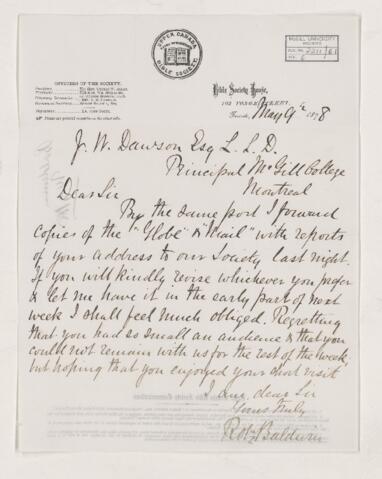 UPPER CANADA
BIBLE SOCIETY
McGILL UNIVERSITY
ARCHIVES
OFFICERS OF THE SOCIETY.
Bible Society House,
102 YONGE STREET,
Toronto, May 9th 1878
J. W. Dawson Esq L. L. D.
Principal McGill College
Montreal
Dear Sir
By the same post I forward
copies of the "Globe" & "Mail" with reports
of your address to our Society last night.
If you will kindly revise whichever you prefer
& let me have it in the early part of next
week I shall feel much obliged. Regretting
that you had so small an audience & that you
could not remain with us for the rest of the week
but hoping that you enjoyed your short visit
I am, dear Sir
Yours truly
Robt Baldwin